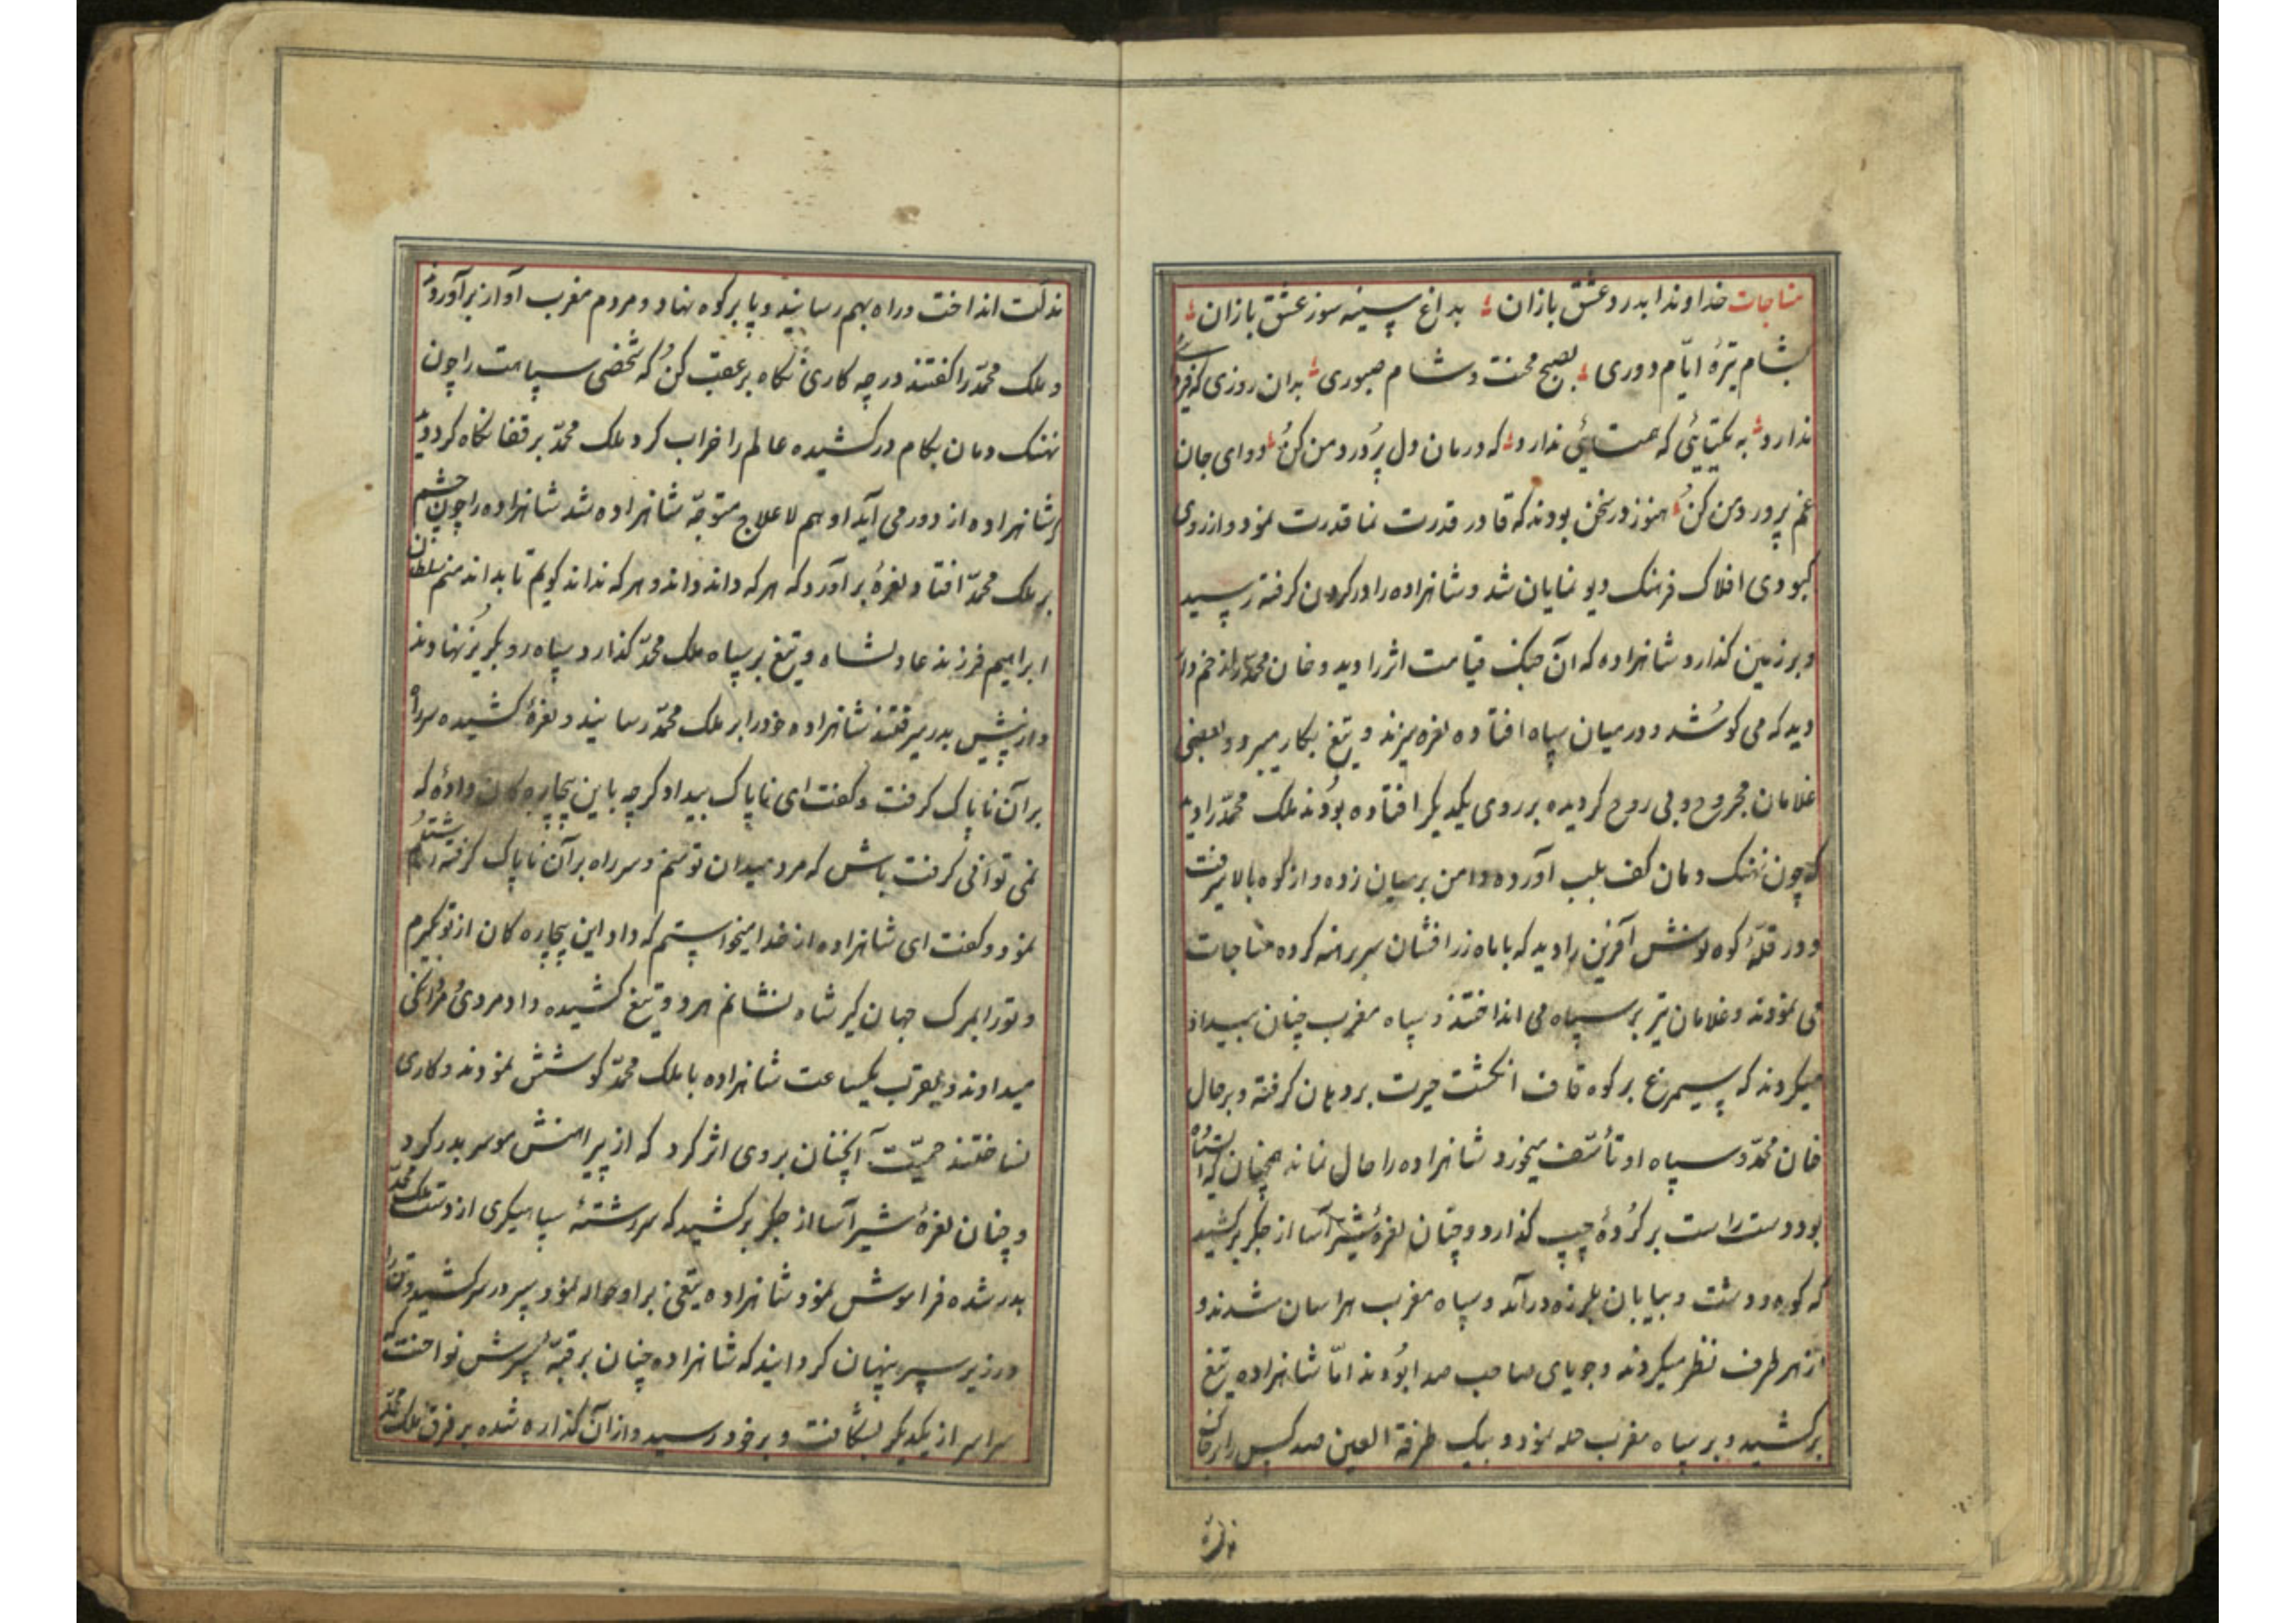 مناجات خداوندا بدرد عشق بازان بداغ سینه سوز عشق بازان
بشام تیرهٔ ایّام دوری بصبح محنت و شام صبوری بدان روزی که فردا
ندارد به یکتایٔی که همتایٔی ندارد که درمان دل پُر درد من کن دوای جان
غم پرورد من کن هنوز در سخن بودند که قادر قدرت نما قدرت نمود و از روی
کبودی افلاک فرهنک دیو نمایان شد و شاهزاده را در کردن کرفته رسید
و بر زمین کذارد شاهزاده که آن جنک قیامت اثر را دید و خان محمّد را زخم دار
دید که می کوشد و در میان سپاه افتاده نعره میزند و تیغ بکار میبرد و بعضی
غلامان مجروح و بی روح کردیده بر روی یکدیکر افتاده بودند ملک محمّد را دید
که چون نهنک دمان کف بلب آورده دامن بر میان زده و از کوه بالا میرفت
و در قلّهٔ کوه نوش آفرین را دید که با ماه زر افشان سر برهنه کرده مناجات
می نمودند و غلامان تیر بر سپاه می انداختند و سپاه مغرب چنان بیداد
میکردند که سیمرغ بر کوه قاف انکشت حیرت بر دهان کرفته و بر حال
خان محمّد و سپاه او تأسّف میخورد شاهزاده را حال نماند همچنان که ایستاده
بود دست راست بر کُردهٔ چپ کذارد و چنان نعرهٔ شیر آسا از جکر برکشید
که کوه و دشت و بیابان بلرزه درآمد و سپاه مغرب هراسان شدند و
از هر طرف نظر میکردند و جویای صاحب صدا بودند امّا شاهزاده تیغ
برکشید و بر سپاه مغرب حمله نمود و بیک طرفة العین صد کس را بر خاک
مذلّت انداخت و راه بهم رسانید و پا بر کوه نهاد و مردم مغرب آواز برآوردند
و ملک محمّد را کفتند در چه کاری نکاه بر عقب کن که شخصی سپاهت را چون
نهنک دمان بکام در کشیده عالم را خراب کرد ملک محمّد بر قفا نکاه کرد دید
شاهزاده از دور می آید او هم لا علاج متوجّه شاهزاده شد شاهزاده را چون چشم
بر ملک محمّد افتاد نعرهٔ برآورد که هر که داند داند و هر که نداند کویم تا بداند منم سلطان
ابراهیم فرزند عادلشاه و تیغ بر سپاه ملک محمّد کذارد و سپاه رو بکریز نهادند
و از پیش بدر میرفتند شاهزاده خود را بر ملک محمّد رسانید و نعرهٔ کشیده سر راه
بر آن ناپاک کرفت و کفت ای ناپاک بیدادکر چه باین بیچاره کان دادهٔ که
نمی توانی کرفت باش که مرد میدان تو منم و سر راه بر آن ناپاک کرفته اشتلم
نمود و کفت ای شاهزاده از خدا میخواستم که داد این بیچاره کان از تو بکیرم
و تو را بمرک جهان کیر شاه نشانم هر دو تیغ کشیده داد مردی و مردانکی
میدادند و بقرب یکساعت شاهزاده با ملک محمّد کوشش نمودند و کاری
نساختند حمیّت آنچنان بروی اثر کرد که از پیراهنش مو سر بدر کرد
و چنان نعرهٔ شیر آسا از جکر برکشید که سر رشتهٔ سپاهیکری از دست ملک محمّد
بدر شده فراموش نمود شاهزاده تیغی بر او حواله نمود سپر در سر کشید و تن را
در زیر سپر پنهان کردانید که شاهزاده چنان بر قبّهٔ سپرش نواخت که
سراسر از یکدیکر بشکافت و بر خود رسید و از آن کذاره شده بر فرق ملک محمّد